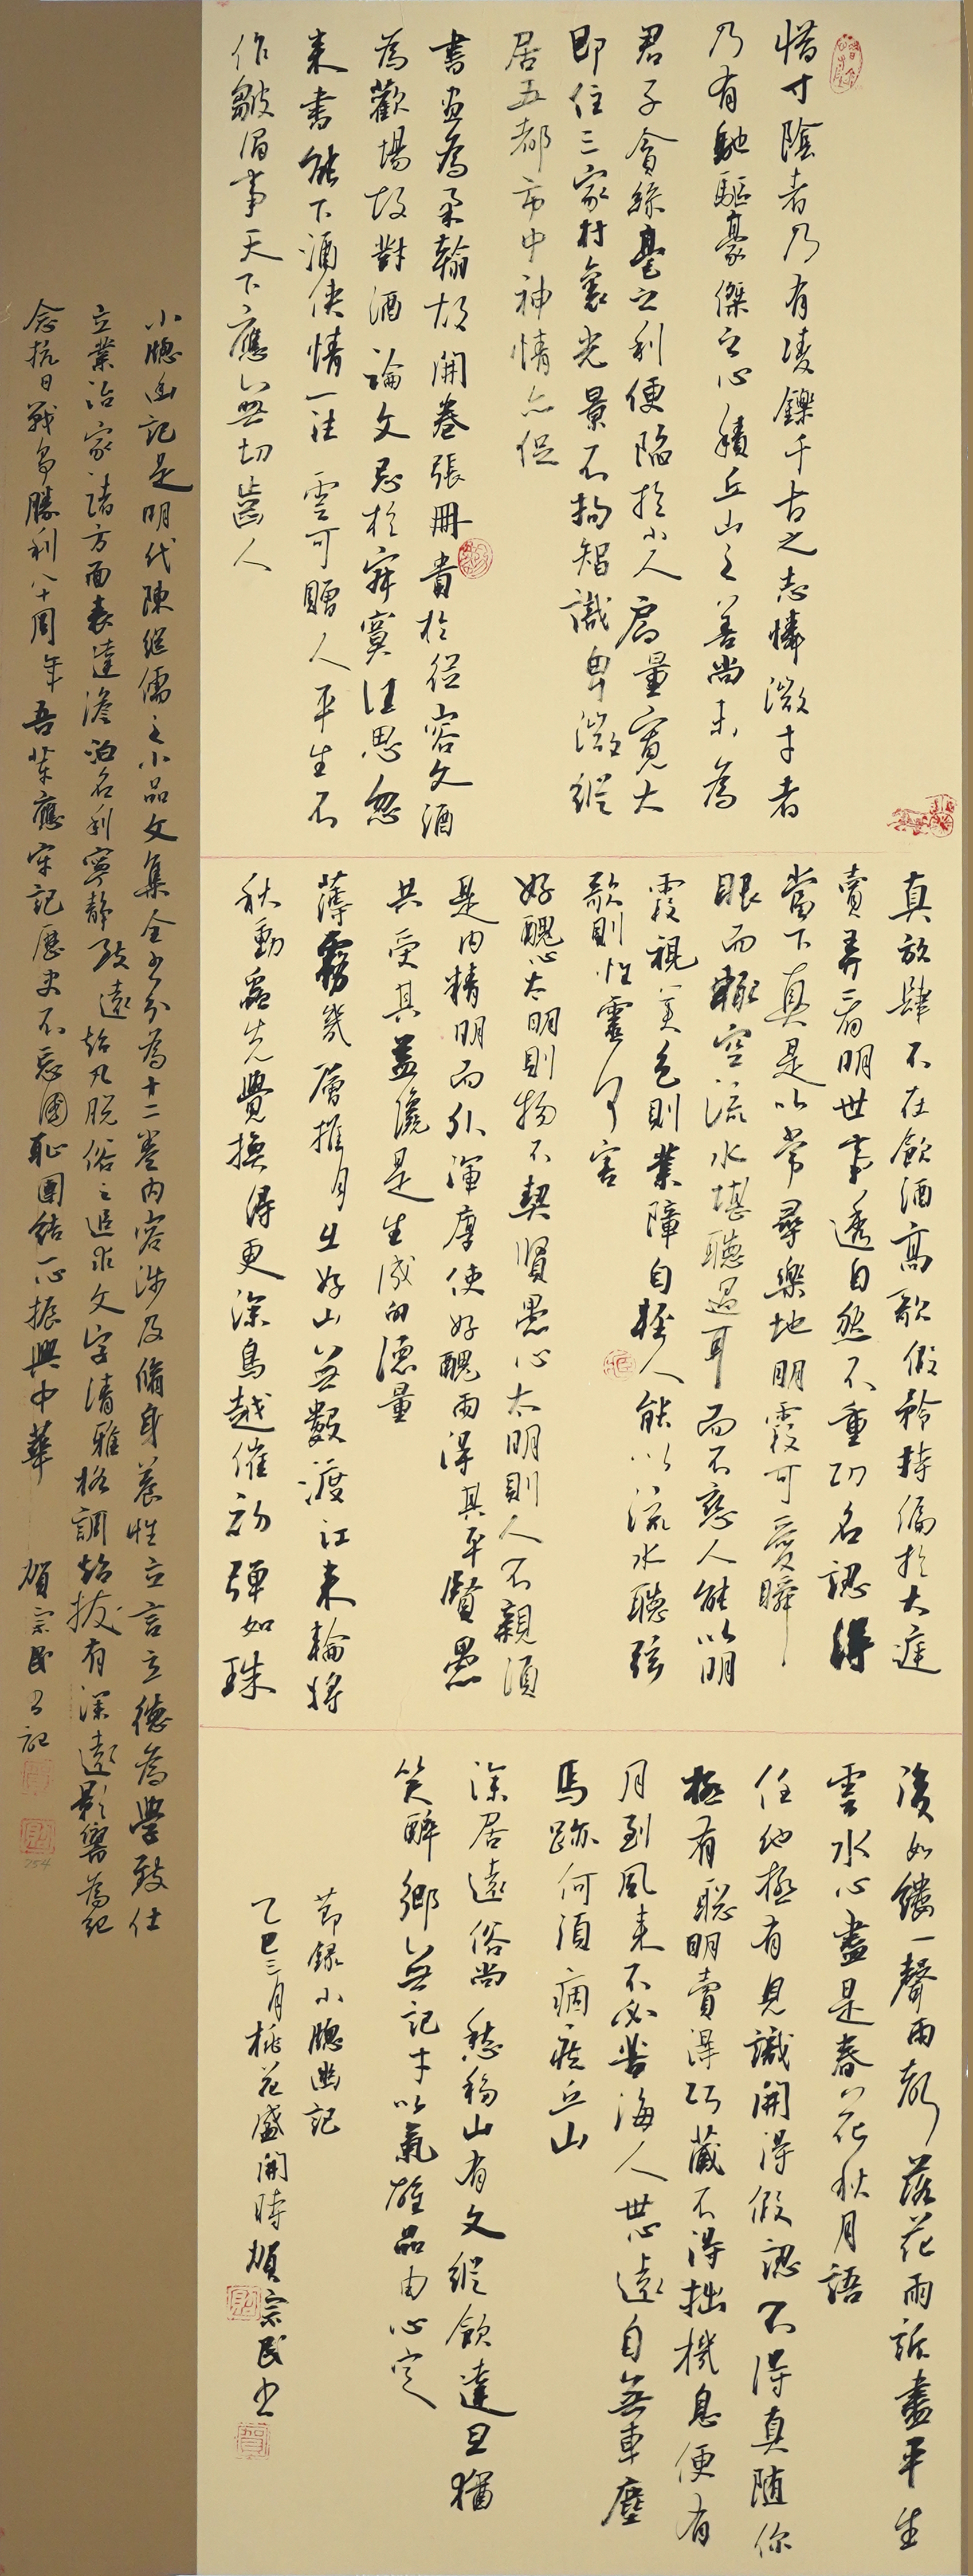 惜寸陰者乃有凌鑠千古之志憐微才者
乃有馳驅豪傑之心積丘山之善尚未為
君子貪絲毫之利便陷於小人局量寬大
即住三家村裏光景不拘智識卑微縱
居五都市中神情亦促
書畫為柔翰故開卷張冊貴於從容文酒
為歡場故對酒論文忌於寂寞注思忽
來書能下酒俠情一往雲可贈人平生不
作皺眉事天下應無切齒人
真放肆不在飲酒高歌假矜持偏於大庭
賣弄看明世事透自然不重功名認得
當下真是以常尋樂地明霞可愛瞬
眼而輒空流水堪聽過耳而不戀人能以明
霞視美色則業障自輕人能以流水聽弦
歌則性靈何害
好醜心太明則物不契賢愚心太明則人不親須
是內精明而外渾厚使好醜兩得其平賢愚
共受其益纔是生成的德量
薄霧幾層推月出好山無數渡江來輪將
秋動蟲先覺換得更深鳥越催初彈如珠
後如縷一聲兩聲落花雨訴盡平生
雲水心盡是春花秋月語
任他極有見識開得假認不得真隨你
極有聰明賣得巧藏不得拙機息便有
月到風來不必苦海人世心遠自無車塵
馬跡何須痼疾丘山
深居遠俗尚愁移山有文縱飲達旦猶
笑醉鄉無記才以氣雄品由心定
節錄小牕幽記
乙巳三月桃花盛開時賀宗民書
小牕幽記是明代陳繼儒之小品文集全書分為十二卷內容涉及脩身養性立言立德為學致仕
立業治家諸方面表達澹泊名利寧靜致遠超凡脫俗之追求文字清雅格調超拔有深遠影響為紀
念抗日戰爭勝利八十周年吾輩應牢記歷史不忘國恥團結一心振興中華 賀宗民又記
754